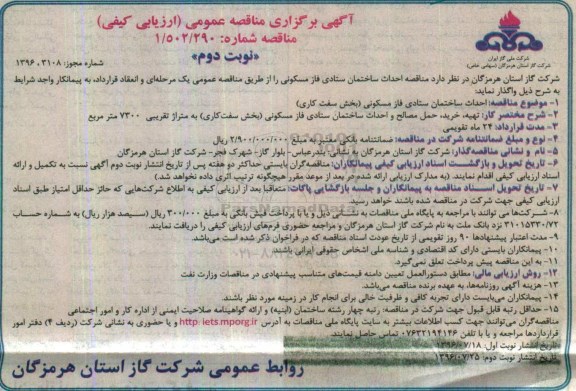 آگهی برگزاری مناقصه عمومی (ارزیابی کیفی)
مناقصه شماره: ۱/۵۰۲/۲۹۰
«نوبت دوم»
شماره مجوز: ۳۱۰۸ . ۱۳۹۶
شرکت ملی گاز ایران
شرکت گاز استان هرمزگان (سهامی خاص)
شرکت گاز استان هرمزگان در نظر دارد مناقصه احداث ساختمان ستادی فاز مسکونی را از طریق مناقصه عمومی یک مرحله‌ای و انعقاد قرارداد، به پیمانکار واجد شرایط
به شرح ذیل واگذار نماید:
۱- موضوع مناقصه: احداث ساختمان ستادی فاز مسکونی (بخش سفت کاری)
۲- شرح مختصر کار: تهیه، خرید، حمل مصالح و احداث ساختمان ستادی فاز مسکونی (بخش سفت‌کاری) به متراژ تقریبی ۷۳۰۰ متر مربع
۳- مدت قرارداد: ۲۴ ماه تقویمی
۴- نوع و مبلغ ضمانتنامه شرکت در مناقصه: ضمانتنامه بانکی معتبر به مبلغ ۲/۹۰۰/۰۰۰/۰۰۰ ریال
۵- نام و نشانی مناقصه‌گذار: شرکت گاز استان هرمزگان به نشانی: بندرعباس- بلوار گاز- شهرک فجر- شرکت گاز استان هرمزگان
۶- تاریخ تحویل و بازگشت اسناد ارزیابی کیفی پیمانکاران: مناقصه‌گران بایستی حداکثر دو هفته پس از تاریخ انتشار نوبت دوم آگهی نسبت به تکمیل و ارائه
اسناد ارزیابی کیفی اقدام نمایند. (به مدارک ارزیابی ارائه شده در بعد از موعد مقرر هیچگونه ترتیب اثری داده نخواهد شد)
۷- تاریخ تحویل اسناد مناقصه به پیمانکاران و جلسه بازگشایی پاکات: متعاقبا بعد از ارزیابی کیفی به اطلاع شرکت‌هایی که حائز حداقل امتیاز طبق اسناد
ارزیابی کیفی جهت شرکت در مناقصه شده باشند خواهد رسید.
۸- شرکت‌ها می توانند با مراجعه به پایگاه ملی مناقصات به نشانی ذیل و یا با پرداخت فیش بانکی به مبلغ ۳۰۰/۰۰۰ ریال (سیصد هزار ریال) به شماره حساب
۳۱۰۱۵۳۳۰۷۲ نزد بانک ملت به نام شرکت گاز استان هرمزگان و مراجعه حضوری فرم‌های ارزیابی کیفی را دریافت نمایند.
۹- مدت اعتبار پیشنهادها ۹۰ روز تقویمی از تاریخ عودت اسناد مناقصه که در فراخوان ذکر شده است می‌باشد.
۱۰- پیمانکاران بایستی دارای کد اقتصادی و شناسه ملی اشخاص حقوقی ایرانی باشند.
۱۱- به این مناقصه پیش پرداخت تعلق نمی‌گیرد.
۱۲- روش ارزیابی مالی: مطابق دستورالعمل تعیین دامنه قیمت‌های متناسب پیشنهادی در مناقصات وزارت نفت
۱۳- هزینه آگهی روزنامه‌ها، به عهده برنده مناقصه می‌باشد.
۱۴- پیمانکاران می‌بایست دارای تجربه کافی و ظرفیت خالی برای انجام کار در زمینه مورد نظر باشند
۱۵- حداقل رتبه قابل قبول جهت شرکت در مناقصه: رتبه چهار رشته ساختمان (ابنیه) و ارائه گواهینامه صلاحیت ایمنی از اداره کار و امور اجتماعی
مناقصه‌گران می‌توانند جهت کسب اطلاعات بیشتر به سایت پایگاه ملی مناقصات به آدرس http: iets.mporg.ir و یا حضوری به نشانی شرکت (ردیف ۴) دفتر امور
قراردادها مراجعه و یا با تلفن ۰۷۶۳۲۱۹۴۱۴۶ تماس حاصل نمایند.
تاریخ انتشار نوبت اول: ۱۳۹۶/۰۷/۱۸
تاریخ انتشار نوبت دوم: ۱۳۹۶/۰۷/۲۵
روابط عمومی شرکت گاز استان هرمزگان